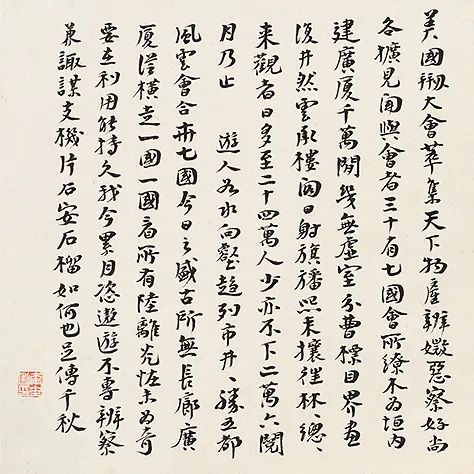 美國刱大會萃集天下物產辨媺惡察好尚
各擴見聞與會者三十有七國會所繚木為垣內
建廣廈千萬間幾無虛室分曹標目界畫
復井然雲廊樓閣日射旗旛熙来攘往林〻總〻
来觀者日多至二十四萬人少亦不下二萬六閱
月乃止 遊人如水向壑趨列市井〻勝五都
風雲會合卅七國今日之盛古所無長廊廣
廈從橫走一國一國看所有陸離光怪未為奇
要在利用能持久我今累月恣遨遊不專辨察
兼諏謀支機片石安石榴如何也足傳千秋